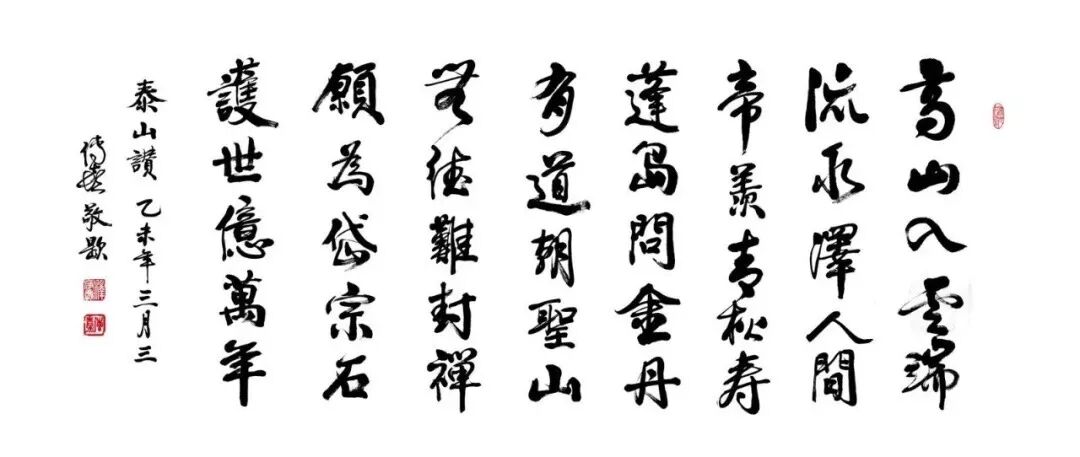 高山入云端
流水澤人間
帝羨春秋寿
蓬島問金丹
有道朝聖山
无德難封禪
願為岱宗石
護世億萬年
泰山讚 乙未年三月三
傳喜敬題